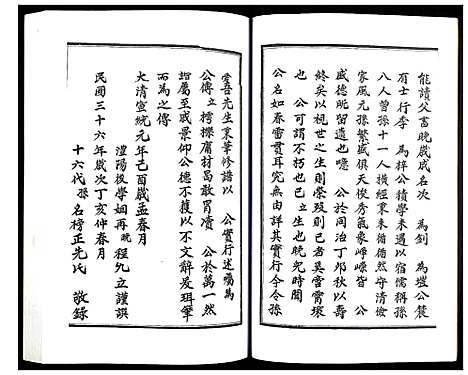 能讀父書晚歲成名次　為釗　為塏公蓂
有士行季　為梓公積學未遇以宿儒稱孫
八人曾孫十一人橫經東來循循然守清儉
家風元孫繁盛俱天俊秀氣象崢嶸皆　公
盛德所留遺也噫　公於同治丁卯秋以壽
終矣以視世之生則榮歿則已者奚啻霄壤
也　公可謂不朽也已立生也晚兒時聞
公名如春雷貫耳究無由詳其實行今令孫
堂吾先生裒筆修譜以　公實行述囑為
公傳立樗櫟庸材曷敢冒瀆　公於萬一然
誼屬至戚景仰公德不獲以不文辭爰珥筆
而為之傳
大清宣統元年己酉歲孟春月
灃陽後學姻再晚　程九立謹譔
民國三十六年歲次丁亥仲春月
十六代孫名榜正先氏　敬錄